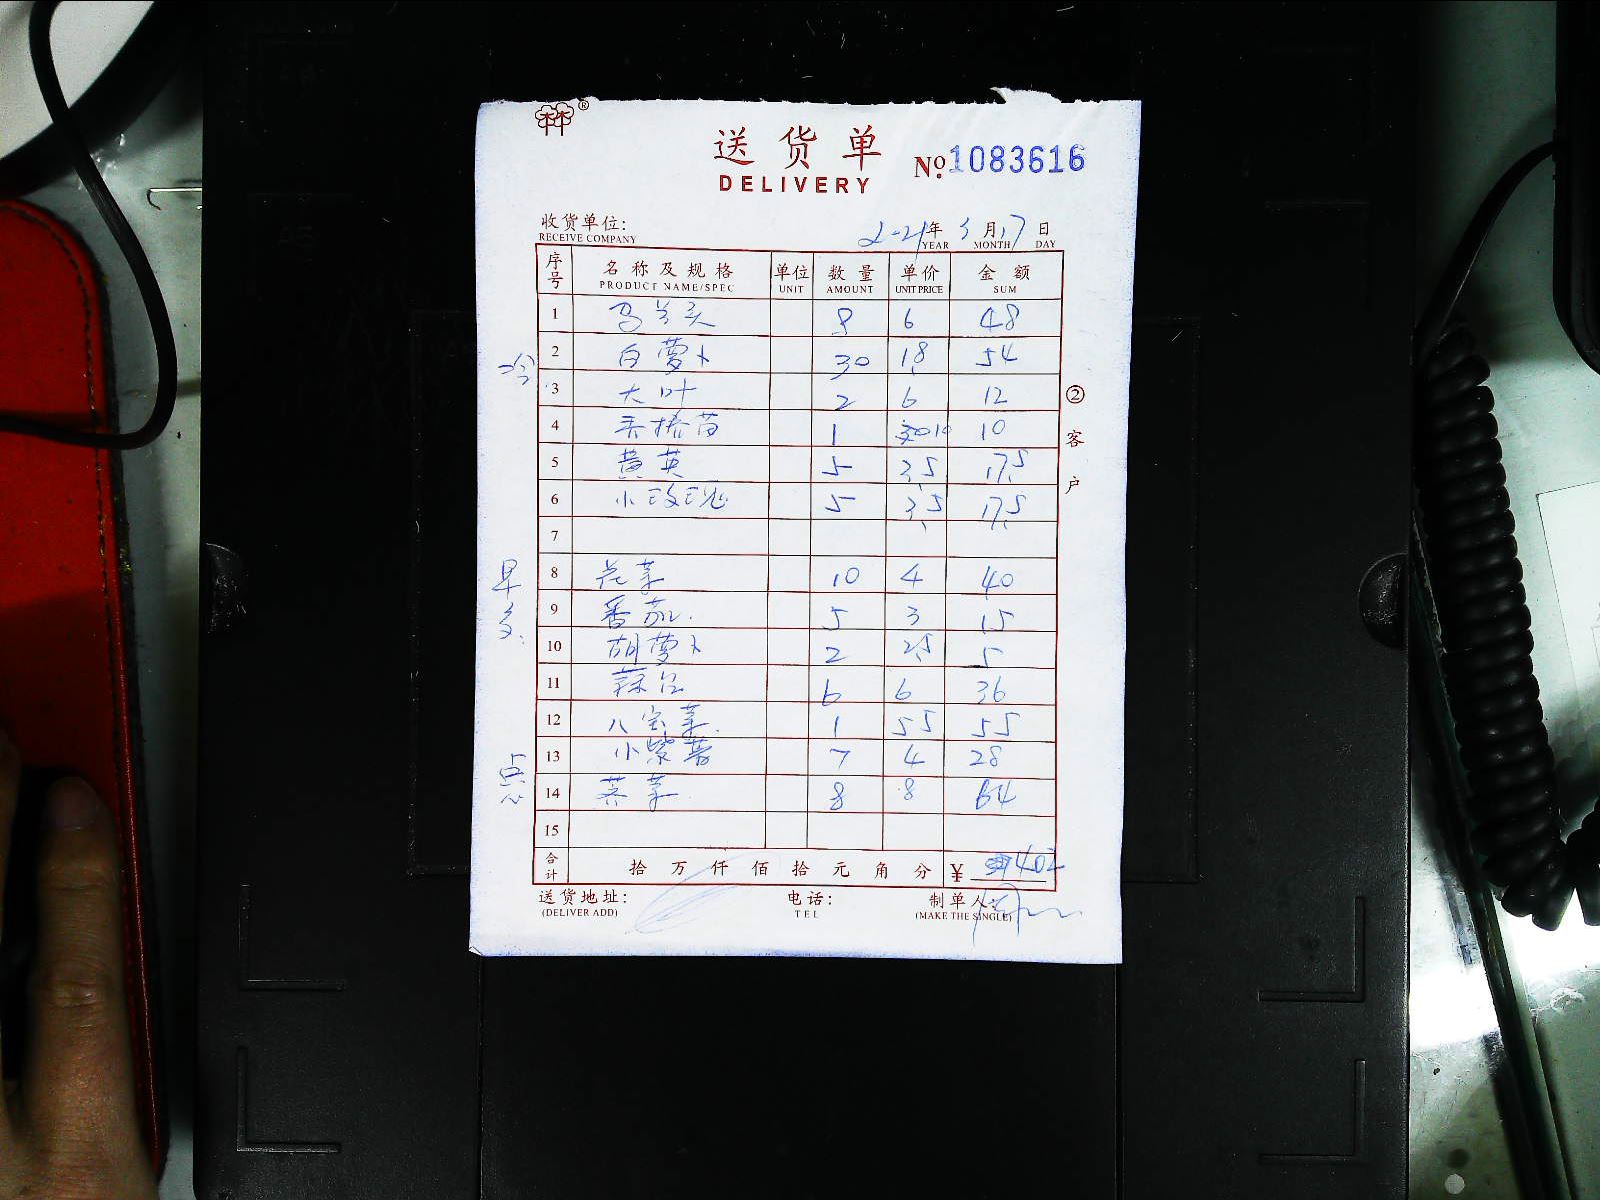 送货单
DELIVERY
No.1083616
收货单位:
RECEIVE COMPANY
2021年 3月17日
YEAR MONTH DAY
序号 名称及规格 单位 数量 单价 金额
PRODUCT NAME/SPEC UNIT AMOUNT UNIT PRICE SUM
1 马兰头 8 6 48
2 白萝卜 30 1.8 54
冷
3 大叶 2 6 12
4 1 10 10
5 黄英 5 3.5 17.5
6 小玫瑰 5 3.5 17.5
7
8 花菜 10 4 40
早
9 番茄 5 3 15
10 胡萝卜 2 2.5 5
11 6 6 36
12 八宝菜 1 55 55
13 小紫薯 7 4 28
点
14 荠菜 8 8 64
15
合计 拾 万 仟 佰 拾 元 角 分 ¥ 402
送货地址: 电话: 制单人:
(DELIVER ADD) TEL (MAKE THE SINGLE)
② 客户